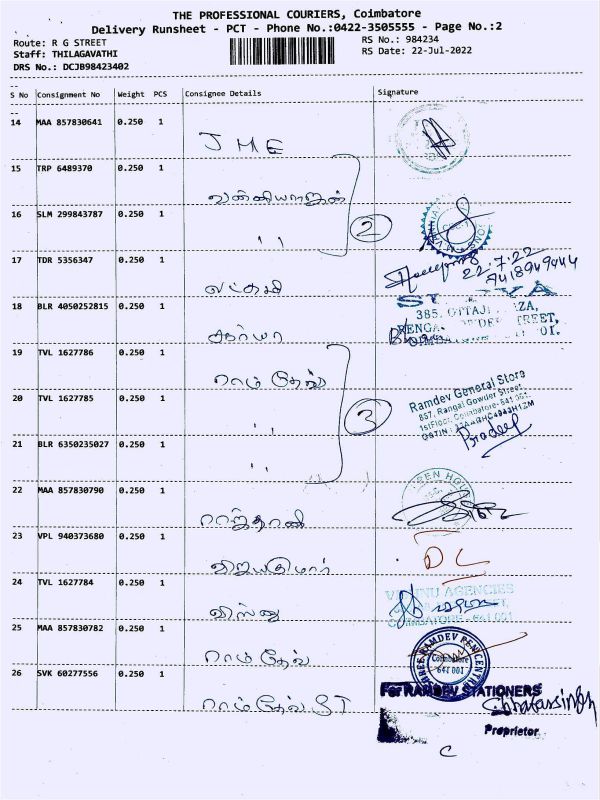 THE PROFESSIONAL COURIERS, Coimbatore
Delivery Runsheet - PCT - Phone No.:0422-3505555 - Page No.:2
Route: R G STREET
RS No.: 984234
Staff: THILAGAVATHI
RS Date: 22-Jul-2022
DRS No.: DCJB98423402
S No Consignment No Weight PCS Consignee Details Signature
14 MAA 857830641 0.250 1
J M E
15 TRP 6489370 0.250 1
வன்னியராஜன்
16 SLM 299843787 0.250 1
" 2
17 TDR 5356347 0.250 1
22.7.22
லட்சுமி
18 BLR 4050252815 0.250 1
385, OTTAJI
சூர்யா
19 TVL 1627786 0.250 1
ராம் தேவ்
Ramdev General Store
857, Rangai Gowder Street,
1st Floor, Coimbatore-641 001.
20 TVL 1627785 0.250 1
" 3
Pradeep
21 BLR 6350235027 0.250 1
"
22 MAA 857830790 0.250 1
ராஜ்தானி
23 VPL 940373680 0.250 1
DC
விஜயகுமார்
24 TVL 1627784 0.250 1
AGENCIES
விஸ்னு
COIMBATORE - 641 001
25 MAA 857830782 0.250 1
SHREE RAMDEV PEN CENTRE
Coimbatore
641 001
ராம்தேவ்
26 SVK 60277556 0.250 1
For RAMDEV STATIONERS
ராம்தேவ் ST
Proprietor
C